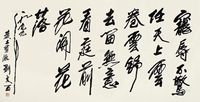 寵辱不驚
任天上雲
卷雲舒
去留無意
看庭前
花開花
落
劉文西